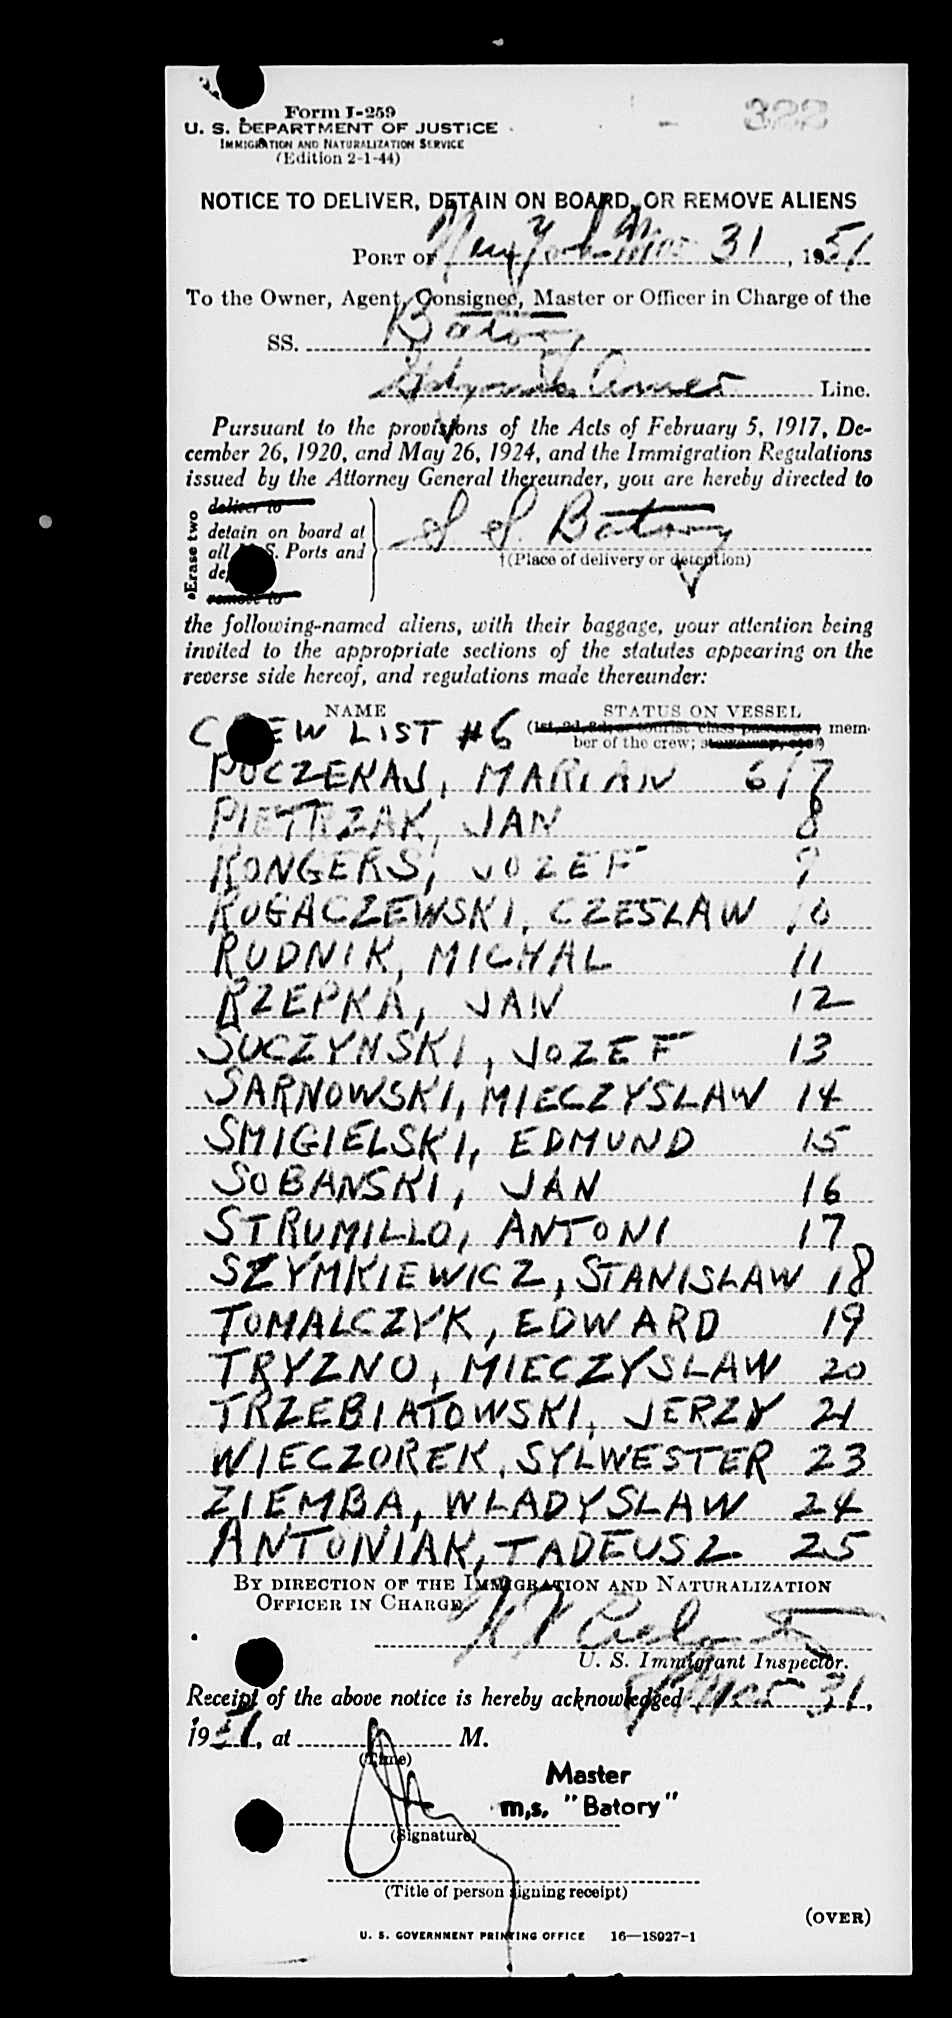 Form I-259
322
U. S. DEPARTMENT OF JUSTICE
IMMIGRATION AND NATURALIZATION SERVICE
(Edition 2-1-44)
NOTICE TO DELIVER, DETAIN ON BOARD, OR REMOVE ALIENS
PORT OF New York Mar 31, 1951
To the Owner, Agent, Consignee, Master or Officer in Charge of the
SS. Batory
Gdynia Amer Line.
Pursuant to the provisions of the Acts of February 5, 1917, De-
cember 26, 1920, and May 26, 1924, and the Immigration Regulations
issued by the Attorney General thereunder, you are hereby directed to
*Erase two
deliver to
detain on board at
all U. S. Ports and
remove to
S S. Batory
†(Place of delivery or detention)
the following-named aliens, with their baggage, your attention being
invited to the appropriate sections of the statutes appearing on the
reverse side hereof, and regulations made thereunder:
NAME STATUS ON VESSEL
(1st, 2d, 3d, or tourist class passenger, mem-
ber of the crew; stowaway, etc.)
CREW LIST #6
POCZEKAJ, MARIAN 6/7
PIETRZAK, JAN 8
RONGERS, JOZEF 9
ROGACZEWSKI, CZESLAW 10
RUDNIK, MICHAL 11
RZEPKA, JAN 12
SUCZYNSKI, JOZEF 13
SARNOWSKI, MIECZYSLAW 14
SMIGIELSKI, EDMUND 15
SOBANSKI, JAN 16
STRUMILLO, ANTONI 17
SZYMKIEWICZ, STANISLAW 18
TOMALCZYK, EDWARD 19
TRYZNO, MIECZYSLAW 20
TRZEBIATOWSKI, JERZY 21
WIECZOREK, SYLWESTER 23
ZIEMBA, WLADYSLAW 24
ANTONIAK, TADEUSZ 25
BY DIRECTION OF THE IMMIGRATION AND NATURALIZATION
OFFICER IN CHARGE
U. S. Immigrant Inspector.
Receipt of the above notice is hereby acknowledged Mar 31,
1951, at M.
(Time)
Master
m.s. "Batory"
(Signature)
(Title of person signing receipt)
(OVER)
U. S. GOVERNMENT PRINTING OFFICE 16—18927-1